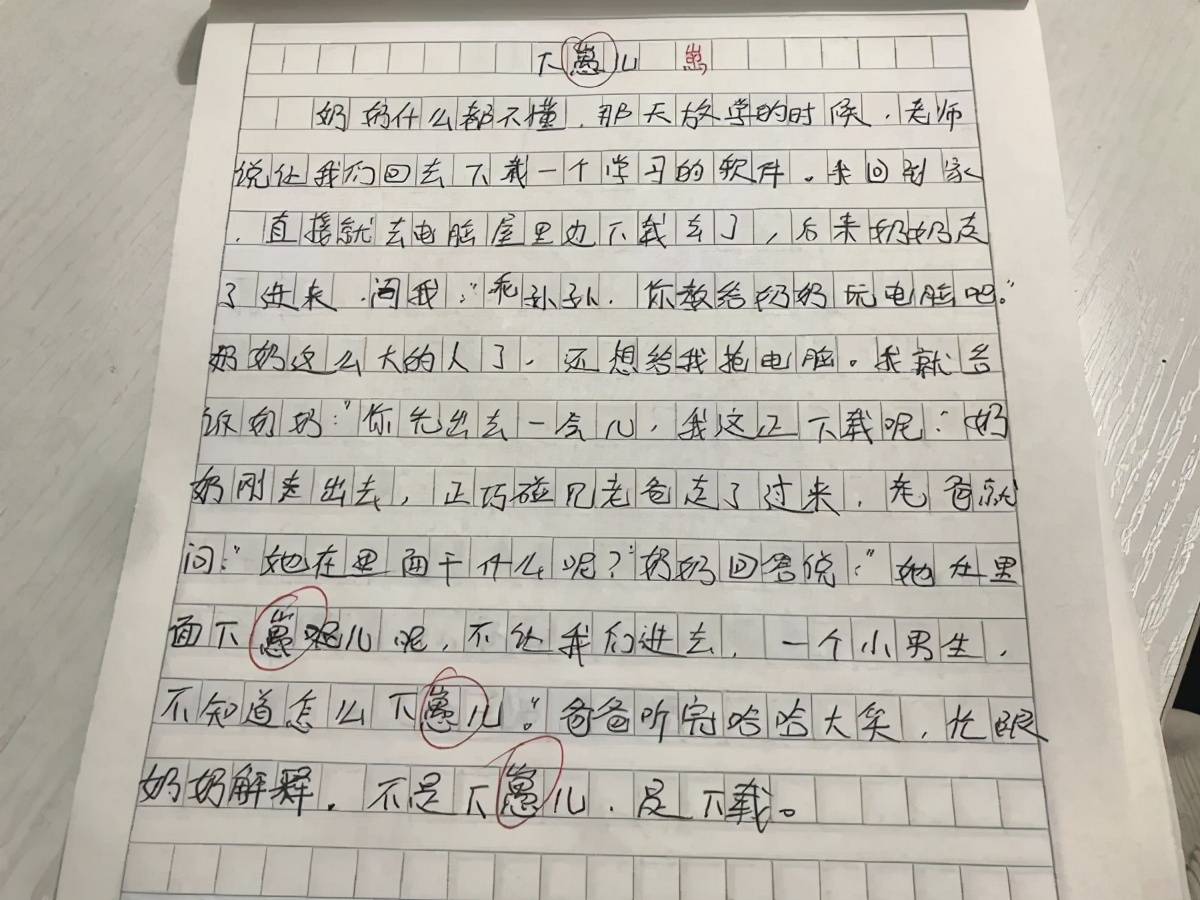 下崽儿 崽
奶奶什么都不懂,那天放学的时候,老师
说让我们回去下载一个学习的软件。我回到家
,直接就去电脑屋里边下载去了,后来奶奶走
了进来,问我:"乖孙孙,你教给奶奶玩电脑吧。"
奶奶这么大的人了,还想给我抢电脑。我就告
诉奶奶:"你先出去一会儿,我这正下载呢."奶
奶刚走出去,正巧碰见老爸走了过来,老爸就
问:"她在里面干什么呢?"奶奶回答说:"她在里
面下崽儿呢,不让我们进去,一个小男生,
不知道怎么下崽儿。"爸爸听完哈哈大笑,忙跟
奶奶解释,不是下崽儿,是下载。